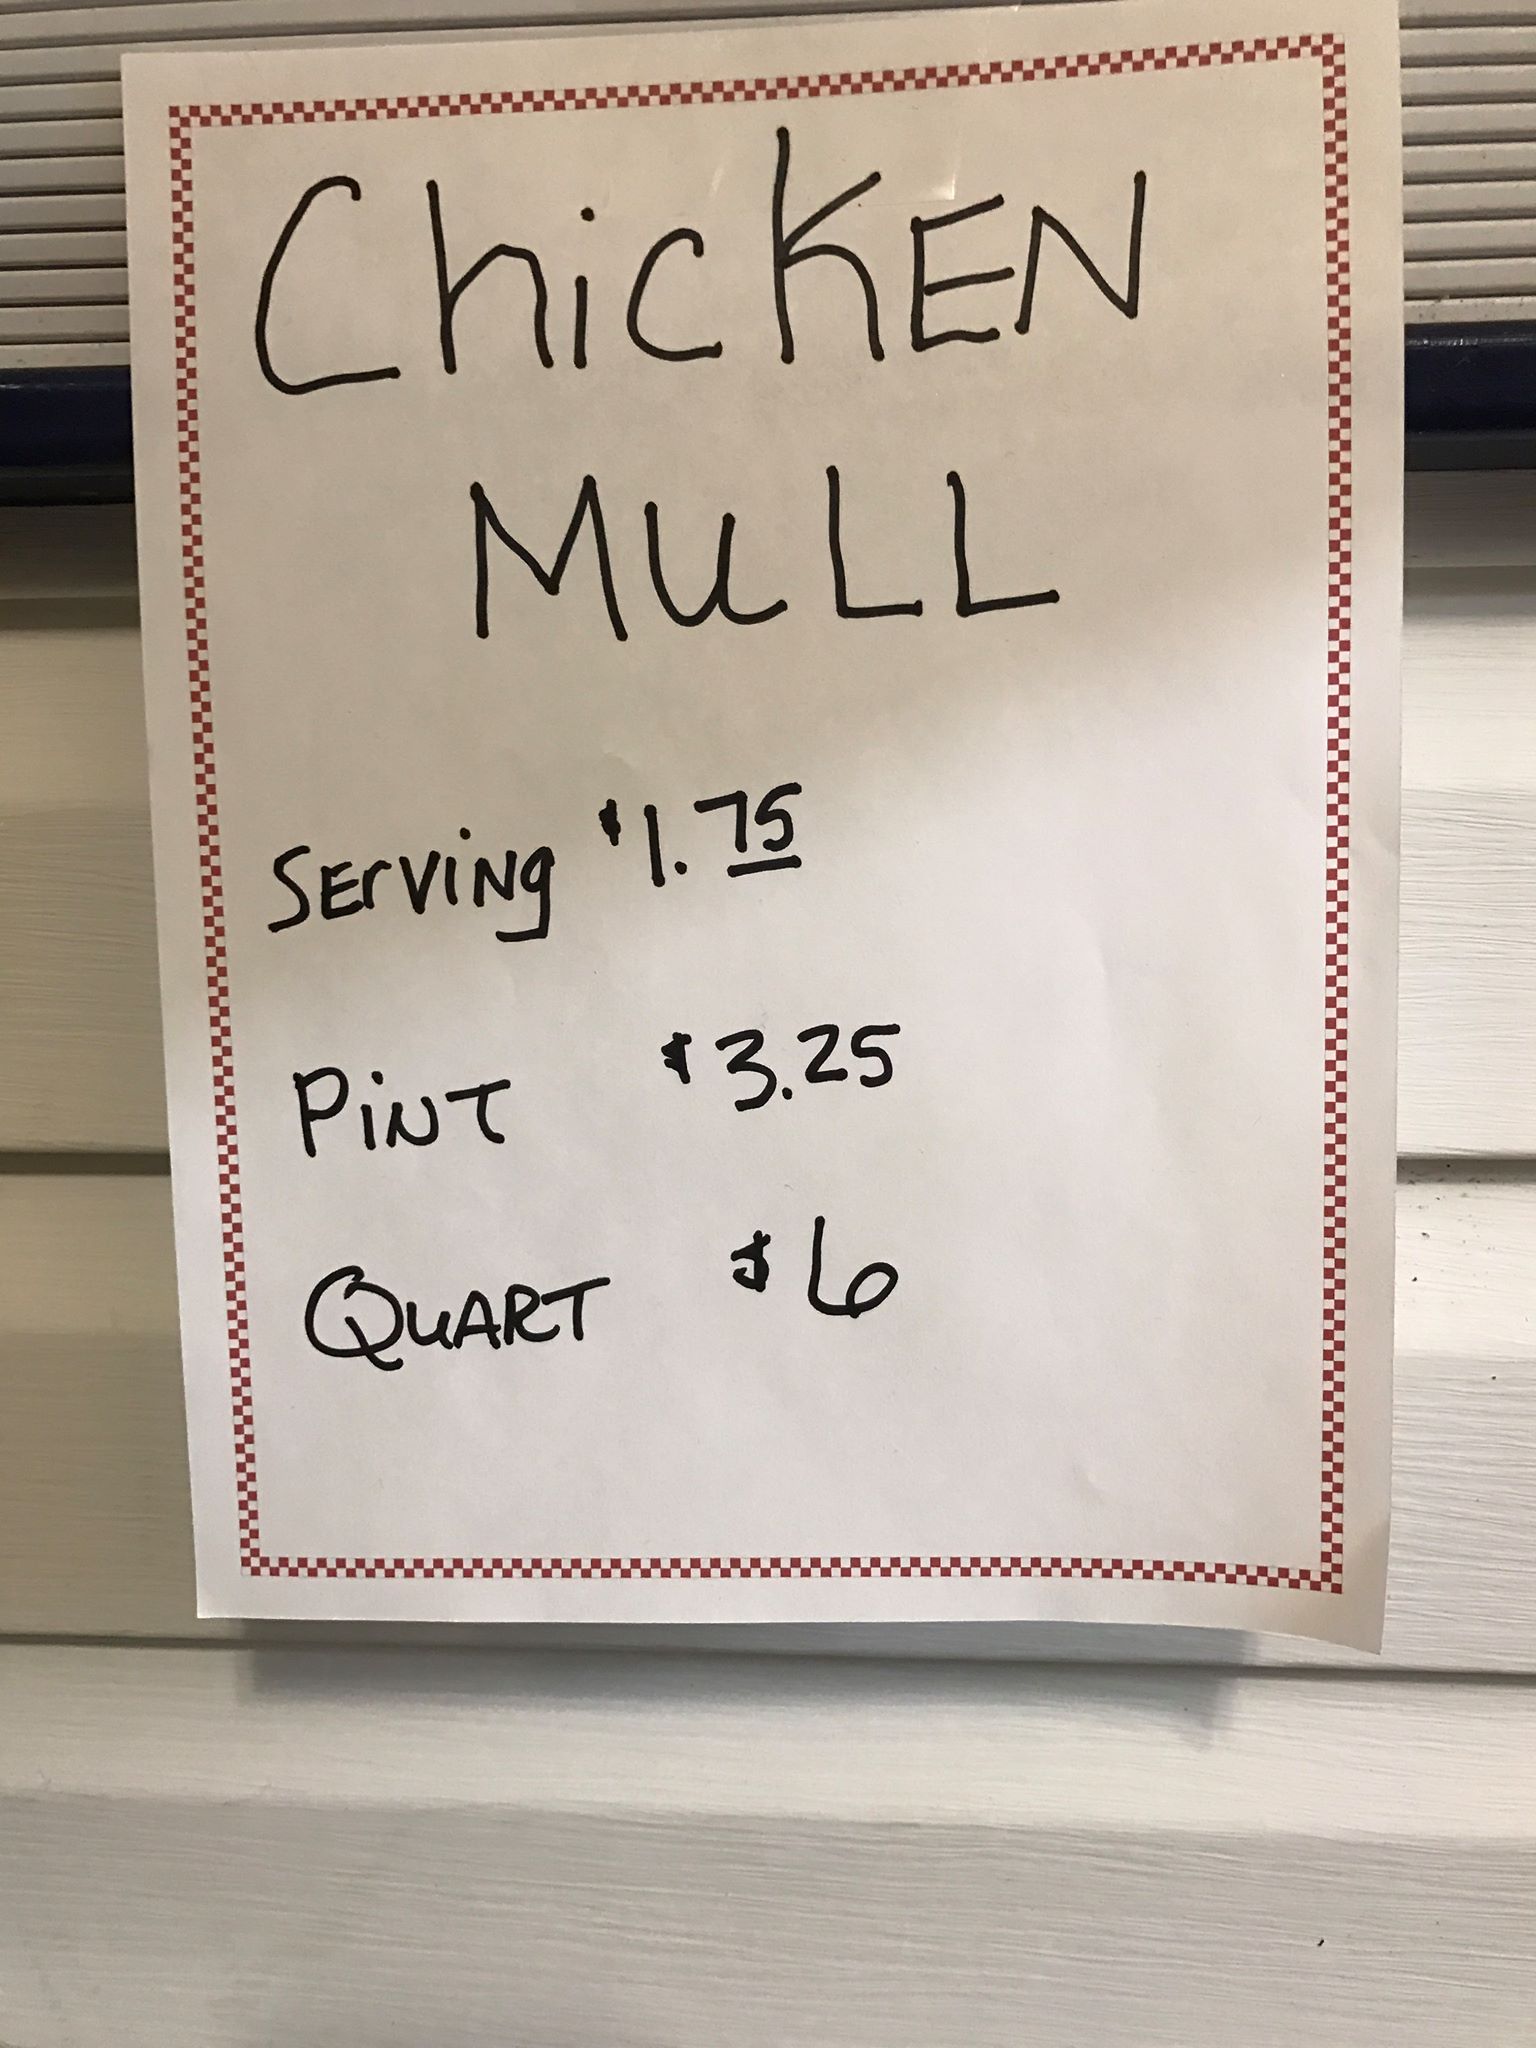 ChicKEN
MuLL
SErViNg $1.75
PiNT $3.25
QuART $6